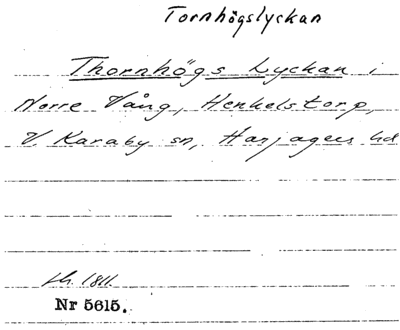 Tornhögslyckan
Thornhögs Lyckan i
Norre Vång, Henkelstorp,
V. Karaby sn, Harjagers hd
1811.
Nr 5615.